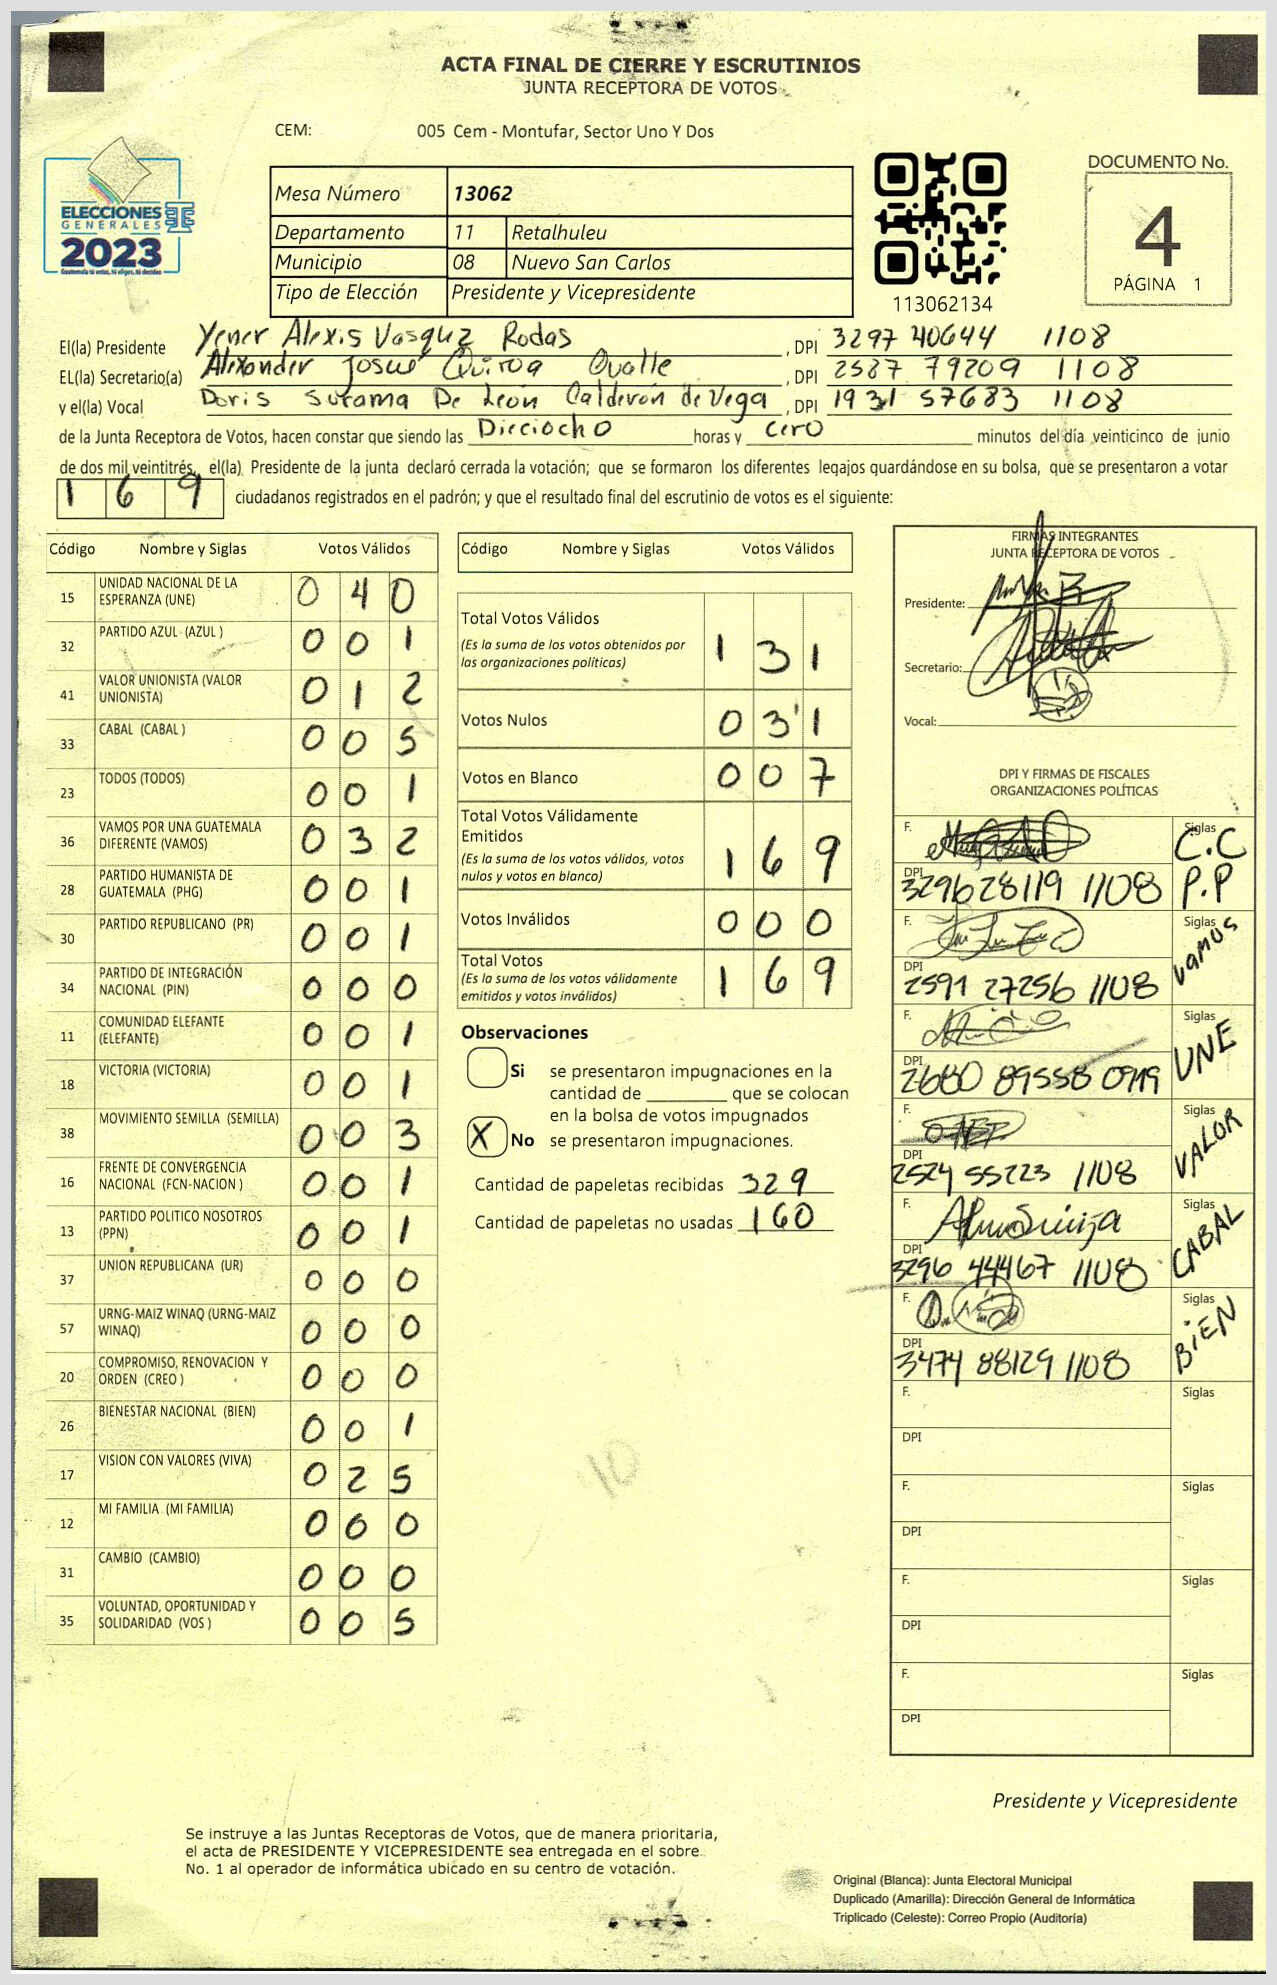 ACTA FINAL DE CIERRE Y ESCRUTINIOS
JUNTA RECEPTORA DE VOTOS
CEM: 005 Cem - Montufar, Sector Uno Y Dos
ELECCIONES
GENERALES
2023
Guatemala tú votas, tú eliges, tú decides
Mesa Número 13062
Departamento 11 Retalhuleu
Municipio 08 Nuevo San Carlos
Tipo de Elección Presidente y Vicepresidente
113062134
DOCUMENTO No.
4
PÁGINA 1
El(la) Presidente Yener Alexis Vasquz Rodas , DPI 3297 40644 1108
EL(la) Secretario(a) Alixander Josué Quiroa Ovalle , DPI 2587 79209 1108
y el(la) Vocal Doris Surama De León Calderón de Vega , DPI 1931 57683 1108
de la Junta Receptora de Votos, hacen constar que siendo las Dieciocho horas y cero minutos del día veinticinco de junio
de dos mil veintitrés, el(la) Presidente de la junta declaró cerrada la votación; que se formaron los diferentes legajos guardándose en su bolsa, que se presentaron a votar
1 6 9 ciudadanos registrados en el padrón; y que el resultado final del escrutinio de votos es el siguiente:
Código Nombre y Siglas Votos Válidos
15 UNIDAD NACIONAL DE LA ESPERANZA (UNE) 0 4 0
32 PARTIDO AZUL (AZUL ) 0 0 1
41 VALOR UNIONISTA (VALOR UNIONISTA) 0 1 2
33 CABAL (CABAL ) 0 0 5
23 TODOS (TODOS) 0 0 1
36 VAMOS POR UNA GUATEMALA DIFERENTE (VAMOS) 0 3 2
28 PARTIDO HUMANISTA DE GUATEMALA (PHG) 0 0 1
30 PARTIDO REPUBLICANO (PR) 0 0 1
34 PARTIDO DE INTEGRACIÓN NACIONAL (PIN) 0 0 0
11 COMUNIDAD ELEFANTE (ELEFANTE) 0 0 1
18 VICTORIA (VICTORIA) 0 0 1
38 MOVIMIENTO SEMILLA (SEMILLA) 0 0 3
16 FRENTE DE CONVERGENCIA NACIONAL (FCN-NACION ) 0 0 1
13 PARTIDO POLITICO NOSOTROS (PPN) 0 0 1
37 UNION REPUBLICANA (UR) 0 0 0
57 URNG-MAIZ WINAQ (URNG-MAIZ WINAQ) 0 0 0
20 COMPROMISO, RENOVACION Y ORDEN (CREO ) 0 0 0
26 BIENESTAR NACIONAL (BIEN) 0 0 1
17 VISION CON VALORES (VIVA) 0 2 5
12 MI FAMILIA (MI FAMILIA) 0 0 0
31 CAMBIO (CAMBIO) 0 0 0
35 VOLUNTAD, OPORTUNIDAD Y SOLIDARIDAD (VOS ) 0 0 5
Código Nombre y Siglas Votos Válidos
Total Votos Válidos 1 3 1
(Es la suma de los votos obtenidos por
las organizaciones políticas)
Votos Nulos 0 3 1
Votos en Blanco 0 0 7
Total Votos Válidamente
Emitidos 1 6 9
(Es la suma de los votos válidos, votos
nulos y votos en blanco)
Votos Inválidos 0 0 0
Total Votos 1 6 9
(Es la suma de los votos válidamente
emitidos y votos inválidos)
Observaciones
Si se presentaron impugnaciones en la
cantidad de ________ que se colocan
en la bolsa de votos impugnados
X No se presentaron impugnaciones.
Cantidad de papeletas recibidas 329
Cantidad de papeletas no usadas 160
10
FIRMAS INTEGRANTES
JUNTA RECEPTORA DE VOTOS
Presidente:
Secretario:
Vocal:
DPI Y FIRMAS DE FISCALES
ORGANIZACIONES POLÍTICAS
F. Siglas C.C
DPI 3296 28119 1108 P.P
F. Siglas vamos
DPI 2591 27256 1108
F. Siglas UNE
DPI 2680 89558 0919
F. Siglas VALOR
DPI 2524 55223 1108
F. Siglas CABAL
DPI 3296 44467 1108
F. Siglas BiEN
DPI 3474 88129 1108
F. Siglas
DPI
F. Siglas
DPI
F. Siglas
DPI
F. Siglas
DPI
Presidente y Vicepresidente
Se instruye a las Juntas Receptoras de Votos, que de manera prioritaria,
el acta de PRESIDENTE Y VICEPRESIDENTE sea entregada en el sobre
No. 1 al operador de informática ubicado en su centro de votación.
Original (Blanca): Junta Electoral Municipal
Duplicado (Amarilla): Dirección General de Informática
Triplicado (Celeste): Correo Propio (Auditoría)